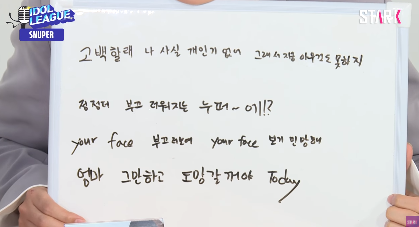 IDOL LEAGUE
SNUPER
STARK
고백할래 나 사실 개인기 없어 그래서 지금 아무것도 못하지
점점더 부끄러워지는 누퍼~ 예!?
your face 부끄러워 your face 보기 민망해
엄마 그만하고 도망갈꺼야 Today